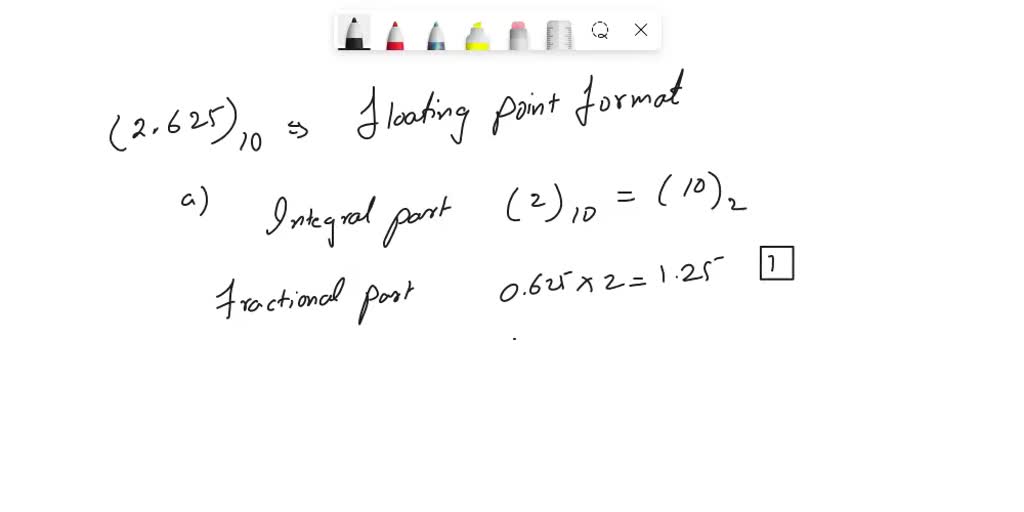 (2.625)10 ⇒ floating point format
a) Integral part (2)10 = (10)2
fractional part 0.625 × 2 = 1.25 1